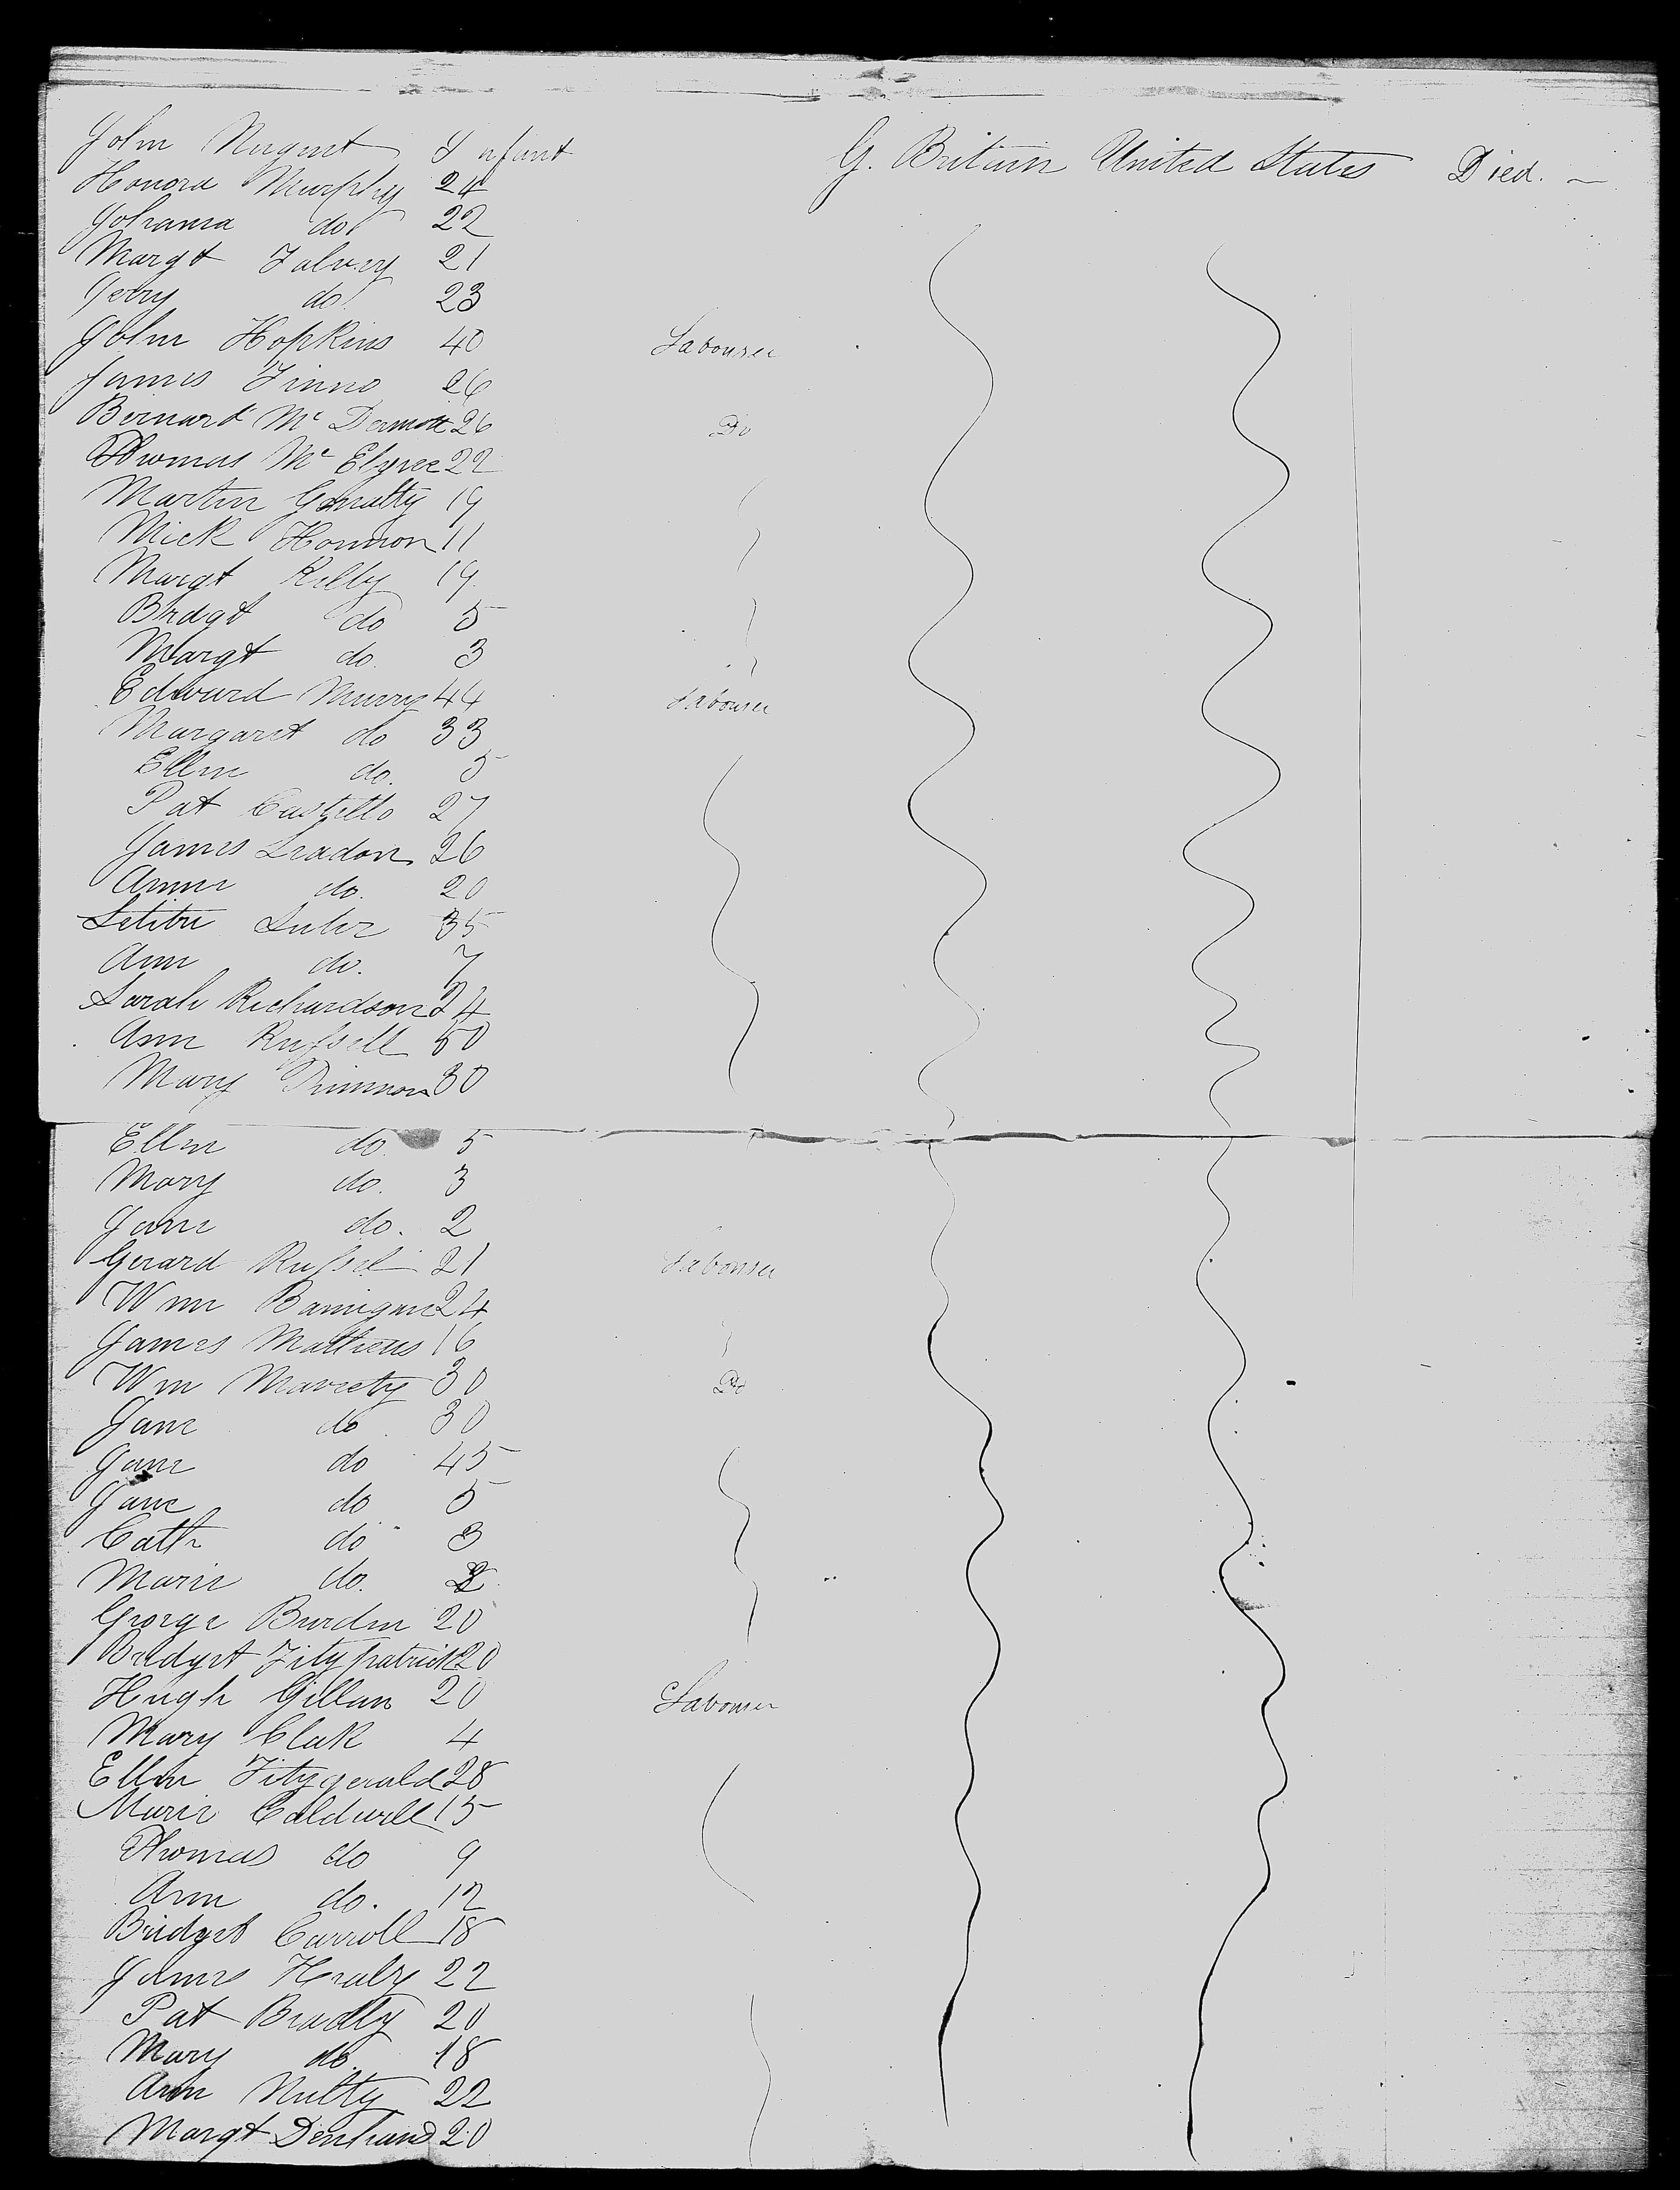 John Nugent Infant G. Britain United States Died. —
Honora Murphy 24
Johanna do 22
Margt Falvey 21
Jerry do 23
John Hopkins 40 Labourer
James Finno 26
Bernard Mc Dermott 26 Do
Thomas Mc 22
Martin 19
Mick 11
Margt Kelly 19
Bridgt do 5
Margt do. 3
Edward Murry 44 Labourer
Margaret do 33
Ellen do. 5
Pat Costello 27
James 26
Anne do. 20
35
Ann do. 7
Sarah Richardson 24
Ann Russell 50
Mary 30
Ellen do. 5
Mary do. 3
Jane do. 2
Gerard Russel 21 Labourer
Wm 24
James Mathews 16
Wm 30 Do
Jane do 30
Jane do 45
Jane do 5
Cath do 3
Marie do.
George Burden 20
Bridget Fitzpatrick 20
Hugh Gillan 20 Labourer
Mary Clak 4
Ellen Fitzgerald 28
Marie Caldwell 15
Thomas do 9
Ann do. 12
Bridget Carroll 18
James Healy 22
Pat Bradly 20
Mary do. 18
Ann Nulty 22
Margt 20